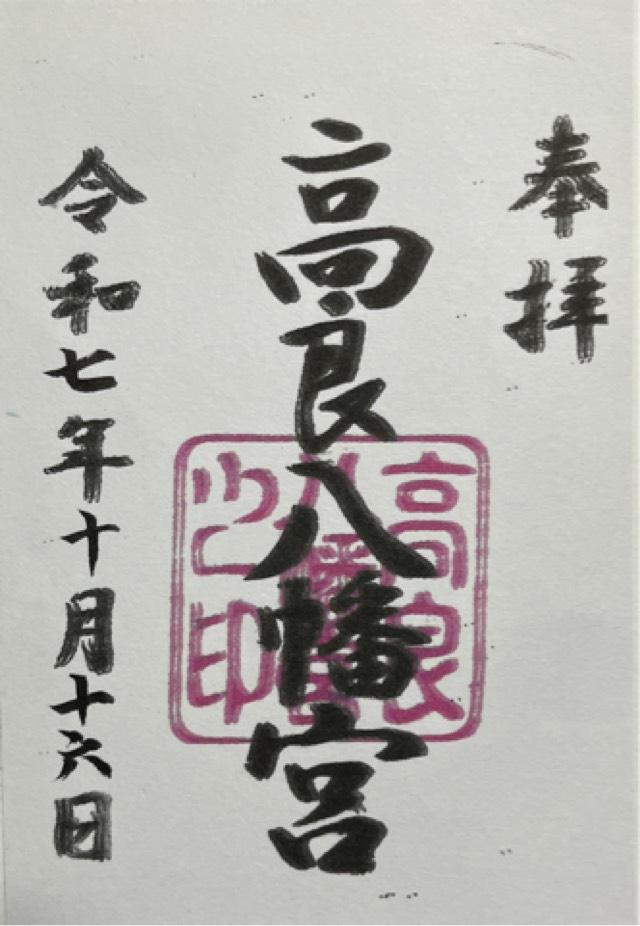 奉拝
高良八幡宮
令和七年十月十六日
高良
八幡宮
之印